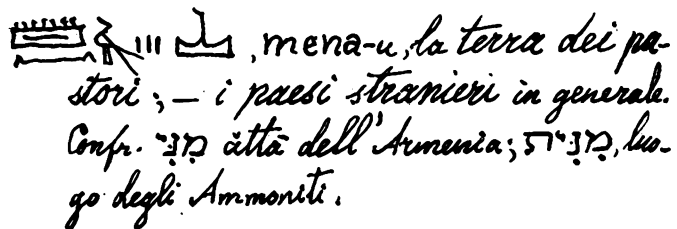 , mena-u, la terra dei pa-
stori; — i paesi stranieri in generale.
Confr. מִנִּי città dell'Armenia; מִנִּית, luo-
go degli Ammoniti.